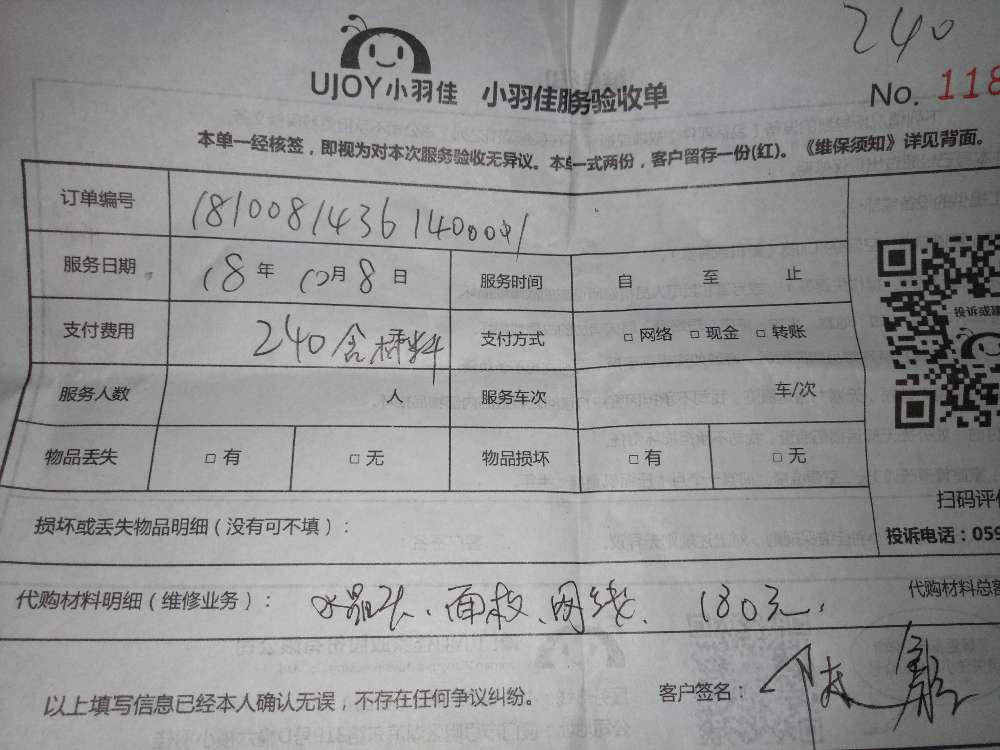 240
UJOY小羽佳 小羽佳服务验收单 No. 118
本单一经核签，即视为对本次服务验收无异议。本单一式两份，客户留存一份(红)。《维保须知》详见背面。
订单编号 181008143614000
服务日期 18 年 10 月 8 日 服务时间 自 至 止
支付费用 240含材料 支付方式 □ 网络 □ 现金 □ 转账
服务人数 人 服务车次 车/次
物品丢失 □ 有 □ 无 物品损坏 □ 有 □ 无
损坏或丢失物品明细（没有可不填）：
投诉或建
扫码评
投诉电话：059
代购材料明细（维修业务）： 水晶头、面板、网线 180元， 代购材料总
以上填写信息已经本人确认无误，不存在任何争议纠纷。 客户签名：